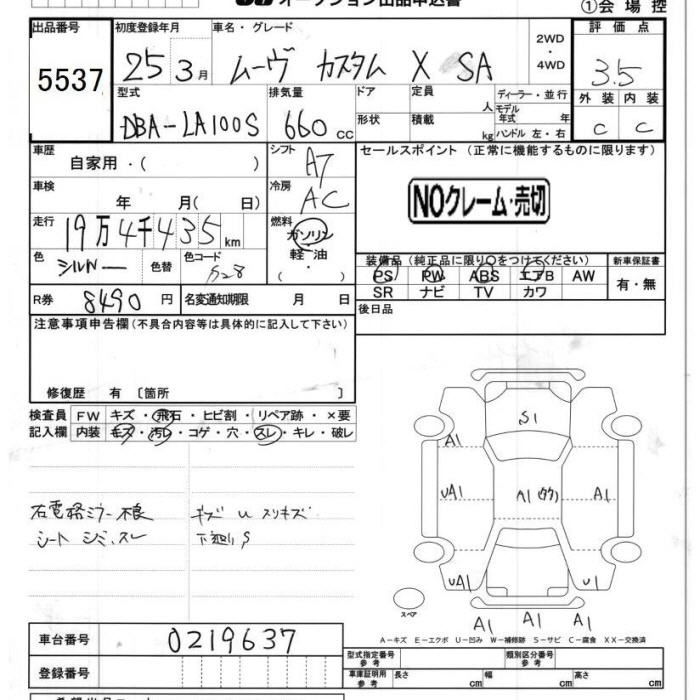 オークション出品申込書
①会場控
出品番号 初度登録年月 車名・グレード 2WD ・ 4WD 評価点
5537 25 3月 ムーヴ カスタム X SA 3.5
型式 排気量 ドア 定員 人 ディーラー・並行 外装 内装
モデル年式 年
DBA-LA100S 660cc 形状 積載 kg ハンドル 左・右 C C
車歴 シフト セールスポイント (正常に機能するものに限ります)
自家用・( ) A7
車検 冷房 NOクレーム・売切
年 月( 日) AC
走行 燃料
19万4千435km ガソリン
軽油
色 色替 色コード 装備品 (純正品に限り○をつけてください) 新車保証書
シルバー S28 PS PW ABS エアB AW 有・無
SR ナビ TV カワ
R券 8490円 名変通知期限 月 日 後日品
注意事項申告欄 (不具合内容等は具体的に記入して下さい)
修復歴 有 〔箇所 〕
検査員 FW キズ・飛石・ヒビ割・リペア跡・×要
記入欄 内装 キズ・汚レ・コゲ・穴・スレ・キレ・破レ
S1
A1
UA1 A1 A1
右電格ミラー不良 キズ U スリキズ
シート シミ、スレ 下廻りS
UA1 U1
スペア A1 A1
A-キズ E-エクボ U-凹み W-補修跡 S-サビ C-腐食 XX-交換済
車台番号 0219637
型式指定番号 参考 類別区分番号 参考
登録番号 車庫証明用 参考 長さ cm 幅 cm 高さ cm